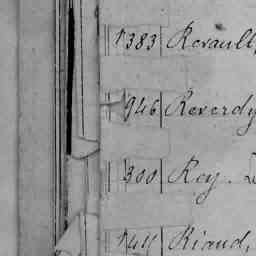 1383 Revault
946 Reverdy
300 Rey.
Riaud,